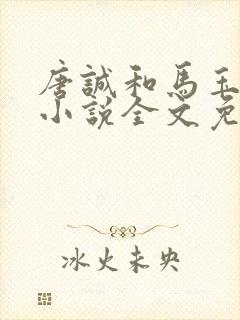 唐誠和馬玉
小說全文免
冰火未央